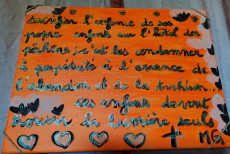 sacrifier l'enfance de ses
propre enfants sur l'hôtel des
péchés; c'est les condamner
à perpétuité à l'errance de
l'abandon et de la trahison...
ces enfants devront
nourrir la lumière seuls
MG